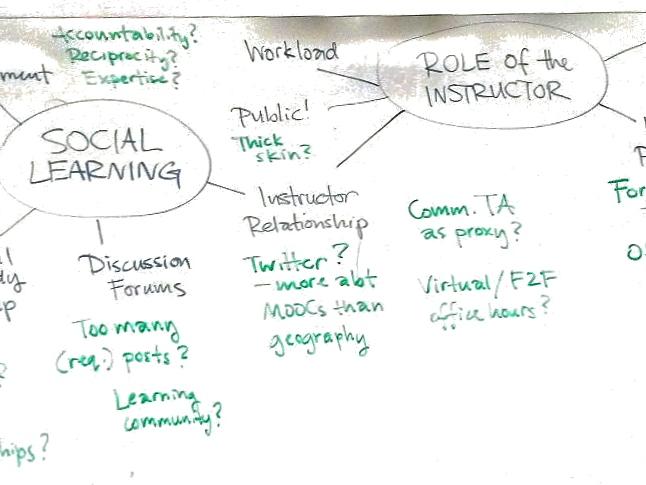 Accountability?
Reciprocity?
Expertise?
ment
SOCIAL
LEARNING
Discussion
Forums
Too many
(req.) posts?
Learning
community?
hips?
Workload
Public!
Thick
skin?
Instructor
Relationship
Twitter?
– more abt
MOOCs than
geography
ROLE of the
INSTRUCTOR
Comm. TA
as proxy?
Virtual/F2F
office hours?
For